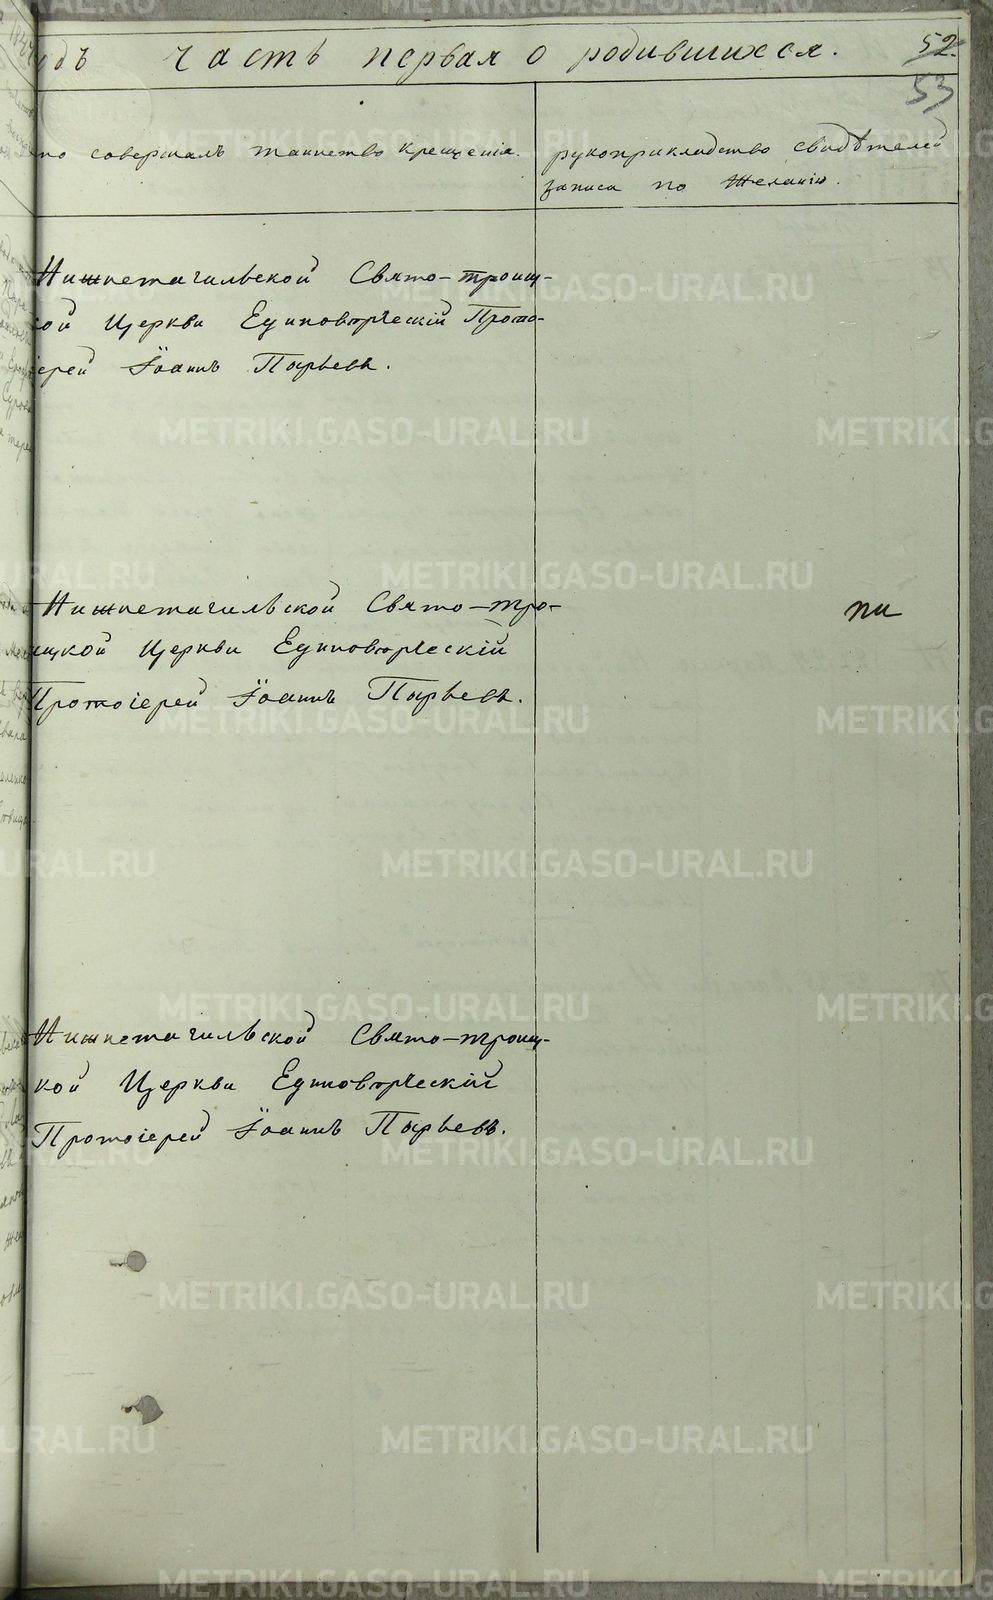 одъ часть первая о родившихся. 52.
53
кто совершалъ таинство крещенія.
рукоприкладство свидѣтелей
записа по желанію.
Нижнетагильской Свято-троиц-
кой Церкви Единовѣрческій Прото-
іерей Іоаннъ Пырьевъ.
Нижнетагильской Свято-тро-
ицкой Церкви Единовѣрческій
Протоіерей Іоаннъ Пырьевъ.
Нижнетагильской Свято-троиц-
кой Церкви Единовѣрческій
Протоіерей Іоаннъ Пырьевъ.
METRIKI.GASO-URAL.RU